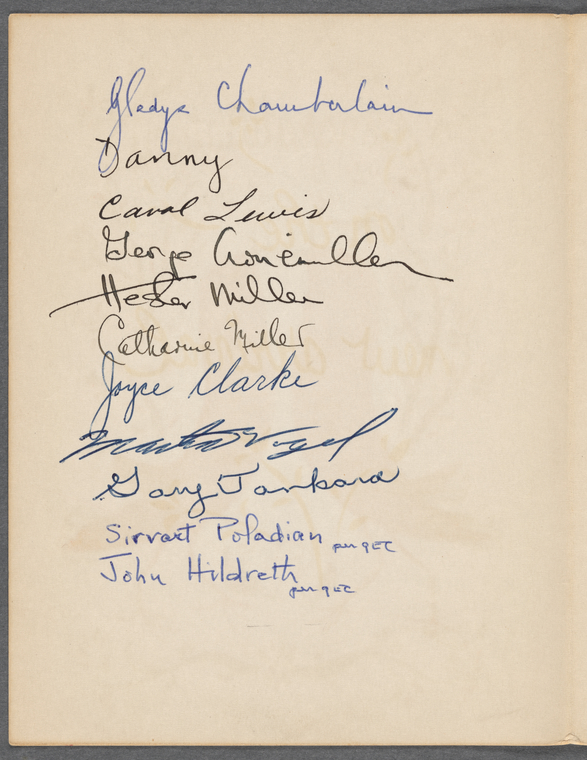 Gladys Chamberlain
Danny
Carol Lewis
George
Hester Miller
Catharine Miller
Joyce Clarke
Martin Vogel
Gary Tankard
Sirvart Poladian per GEC
John Hildreth
per GEC